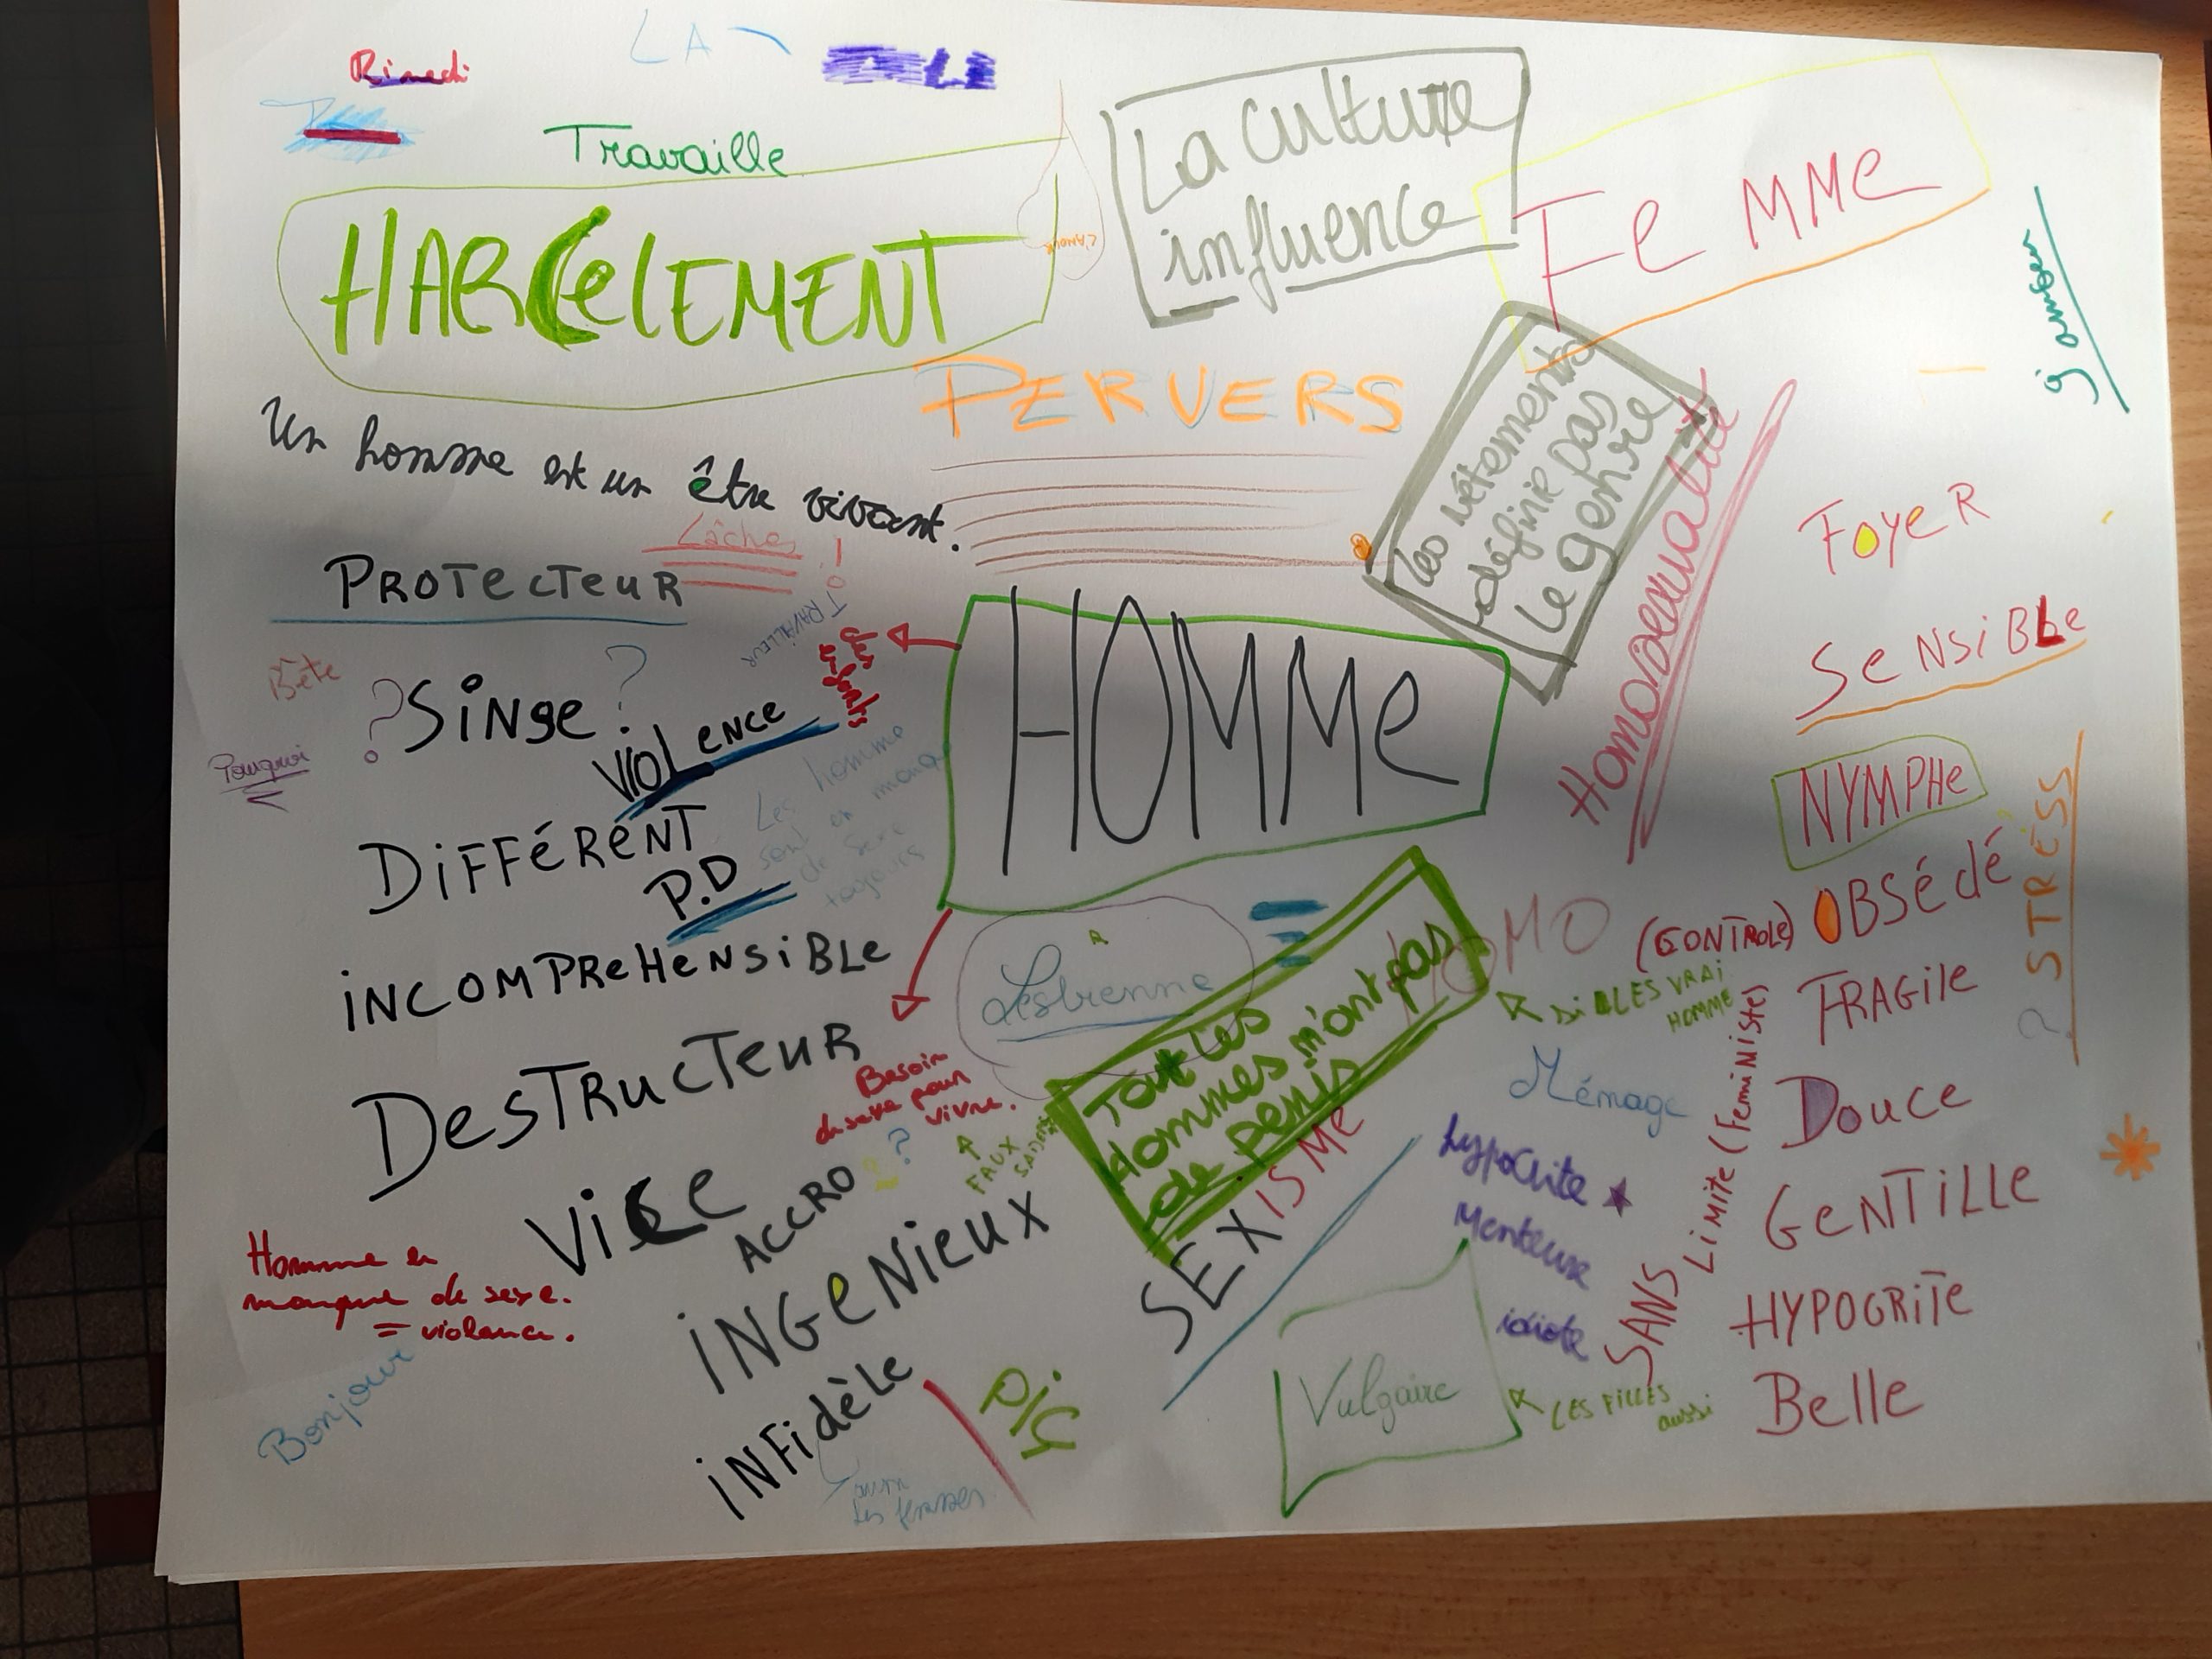 LA
Travaille
HARCELEMENT
La culture
influence
FeMMe
PERVERS
Un homme est un être vivant.
Lâches
!
PROTECTEUR
TRAVAILLEUR
les vêtements
définie pas
le genre
Homosexualité
HOMMe
FoyeR
SeNSiBLe
NYMPHe
OBSédé
(CONTROLE)
? STRESS
FRAGile
Douce
GeNTiLLe
HYPOCRITe
Belle
Bête
? SiNge ?
Pourquoi
VIOLENCE
DiFFéReNT
P.D
Les homme
sont en manque
de sexe
toujours
iNCOMPReHeNSiBLe
DesTRucTeuR
Besoin
de sexe pour
vivre.
?
FAUX
ViCe
ACCRO
iNGeNieux
iNFidèLe
aussi
les femmes
Homme en
manque de sexe.
= violence.
Bonjour
Lesbienne
Tout les
Hommes n'ont pas
de penis
HOMO
SEXISMe
LES VRAI
HOMME
Ménage
hypocrite
Menteuse
idiote
SANS LiMiTe (Feministes)
Vulgaire
LES FILLES
aussi